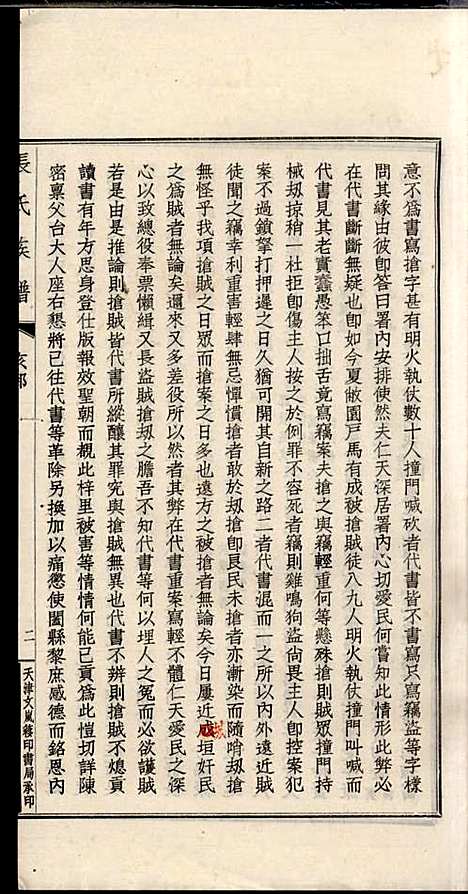 意不爲書寫搶字甚有明火執仗數十人撞門喊砍者代書皆不書寫只寫竊盜等字樣
問其緣由彼卽答曰署內安排使然夫仁天深居署內心切愛民何嘗知此情形此弊必
在代書斷斷無疑也卽如今夏敝園戸馬有成被搶賊徒八九人明火執仗撞門叫喊而
代書見其老實蠢愚笨口拙舌竟寫竊案夫搶之與竊輕重何等懸殊搶則賊眾撞門持
械刼掠稍一杜拒卽傷主人按之於例罪不容死者竊則雞鳴狗盜尙畏主人卽控案犯
案不過鎖拏打押遲之日久猶可開其自新之路二者代書混而一之所以內外遠近賊
徒聞之竊幸利重害輕肆無忌憚慣搶者敢於刼搶卽良民未搶者亦漸染而隨哨刼搶
無怪乎我項搶賊之日眾而搶案之日多也遠方之被搶者無論矣今日屢近城垣奸民
之爲賊者無論矣邇來又多差役所爲者然其弊在代書重案寫輕不體仁天愛民之深
心以致總役奉票懶緝又長盜賊搶刼之膽吾不知代書等何以埋人之冤而必欲護賊
若是由是推論則搶賊皆代書所縱釀其罪究與搶賊無異也代書不辨則搶賊不熄貢
讀書有年方思身登仕版報效聖朝而覩此梓里被害等情情何能已貢爲此愷切詳陳
密稟父台大人座右懇將已往代書等革除另換加以痛懲使闔縣黎庶感德而銘恩內
張氏族譜
亥部
二
天津文嵐簃印書局承印
城